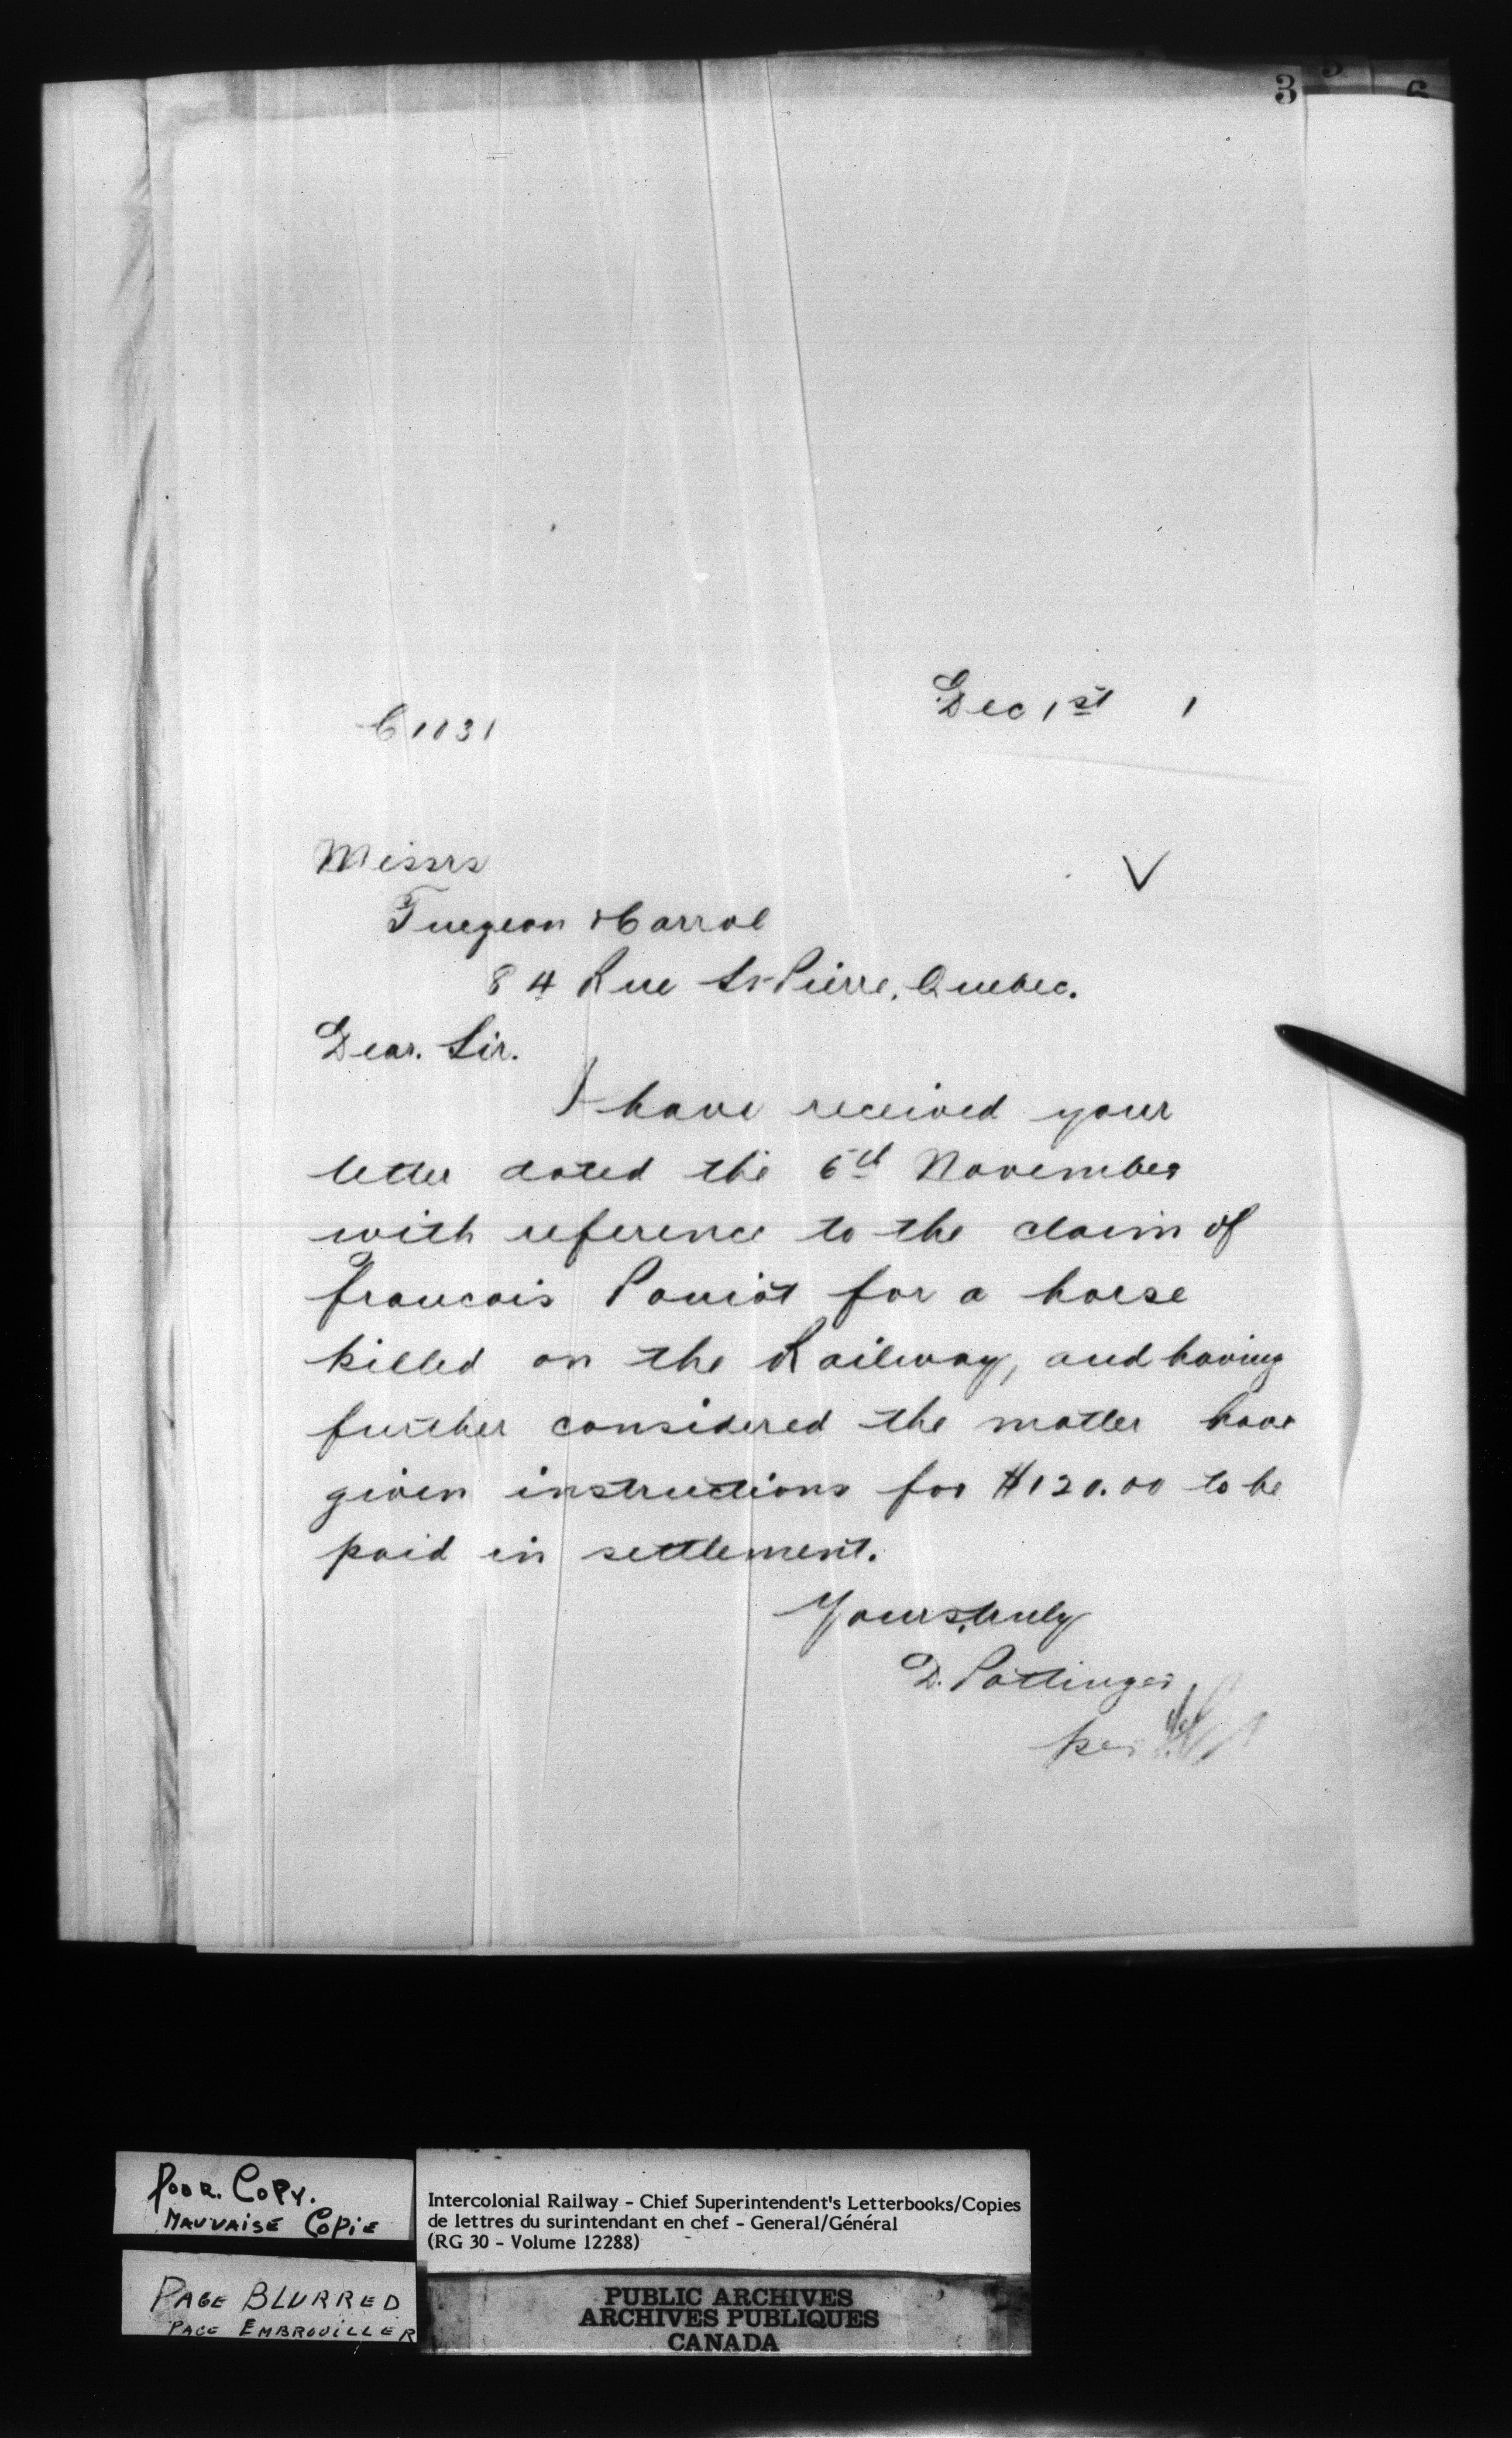 3
Dec 1st 1
C1131
Messrs
Turgeon & Carrol
84 Rue St Pierre, Quebec.
Dear. Sir.
I have received your
letter dated the 5th November
with reference to the claim of
francois Pouriot for a horse
killed on the Railway, and having
further considered the matter have
given instructions for $120.00 to be
paid in settlement.
Yours truly
D. Pottinger
per
Poor. Copy.
Mauvaise Copie
Page Blurred
Page Embrouiller
Intercolonial Railway - Chief Superintendent's Letterbooks/Copies
de lettres du surintendant en chef - General/Général
(RG 30 - Volume 12288)
PUBLIC ARCHIVES
ARCHIVES PUBLIQUES
CANADA